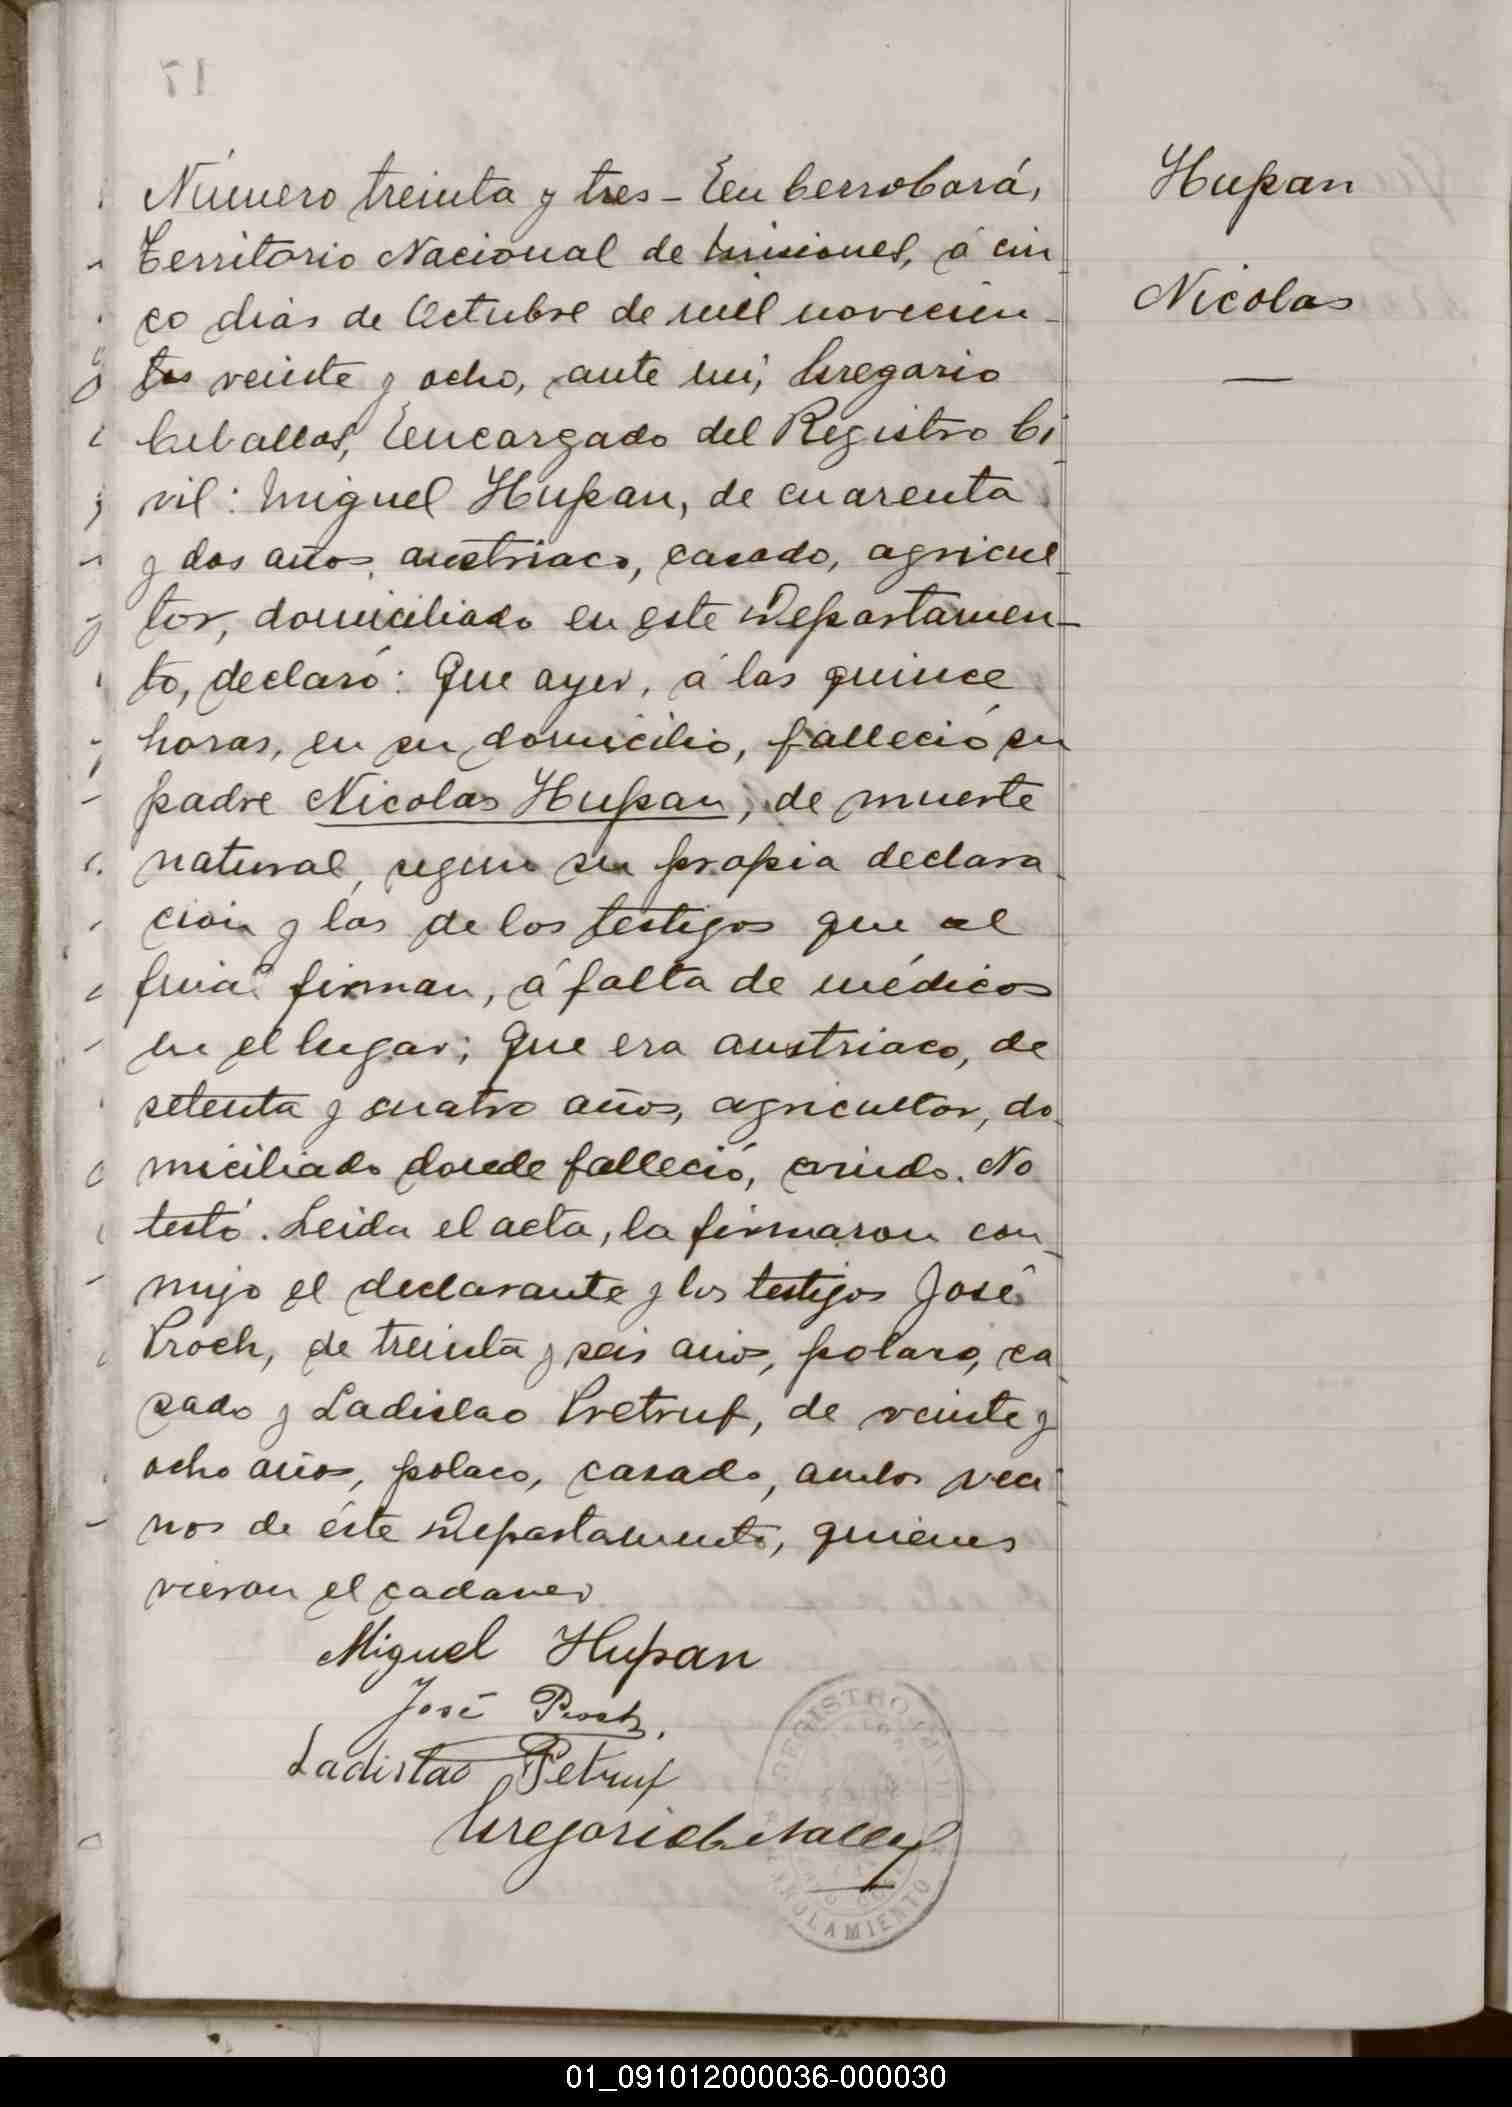 Número treinta y tres - En Cerro Corá,
Territorio Nacional de Misiones, á cin
co dias de Octubre de mil novecien-
tos veinte y ocho, ante mi, Gregorio
Ceballos, Encargado del Registro Ci
vil: Miguel Hupan, de cuarenta
y dos años, austriaco, casado, agricul
tor, domiciliado en este Departamen-
to, declaró: Que ayer, á las quince
horas, en su domicilio, falleció su
padre Nicolas Hupan, de muerte
natural, segun su propia declara
cion y las de los testigos que al
final firman, á falta de médicos
en el lugar; Que era austriaco, de
setenta y cuatro años, agricultor, do
miciliado donde falleció, viudo. No
testó. Leida el acta, la firmaron con
migo el declarante y los testigos José
Proch, de treinta y seis años, polaco, ca
sado y Ladislao Pretruf, de veinte y
ocho años, polaco, casado, ambos veci
nos de éste Departamento, quienes
vieron el cadaver
Miguel Hupan
José Proch.
Ladislao Petruf
Gregorio Ceballos
REGISTRO CIVIL
ENROLAMIENTO
Hupan
Nicolas
17
01_091012000036-000030